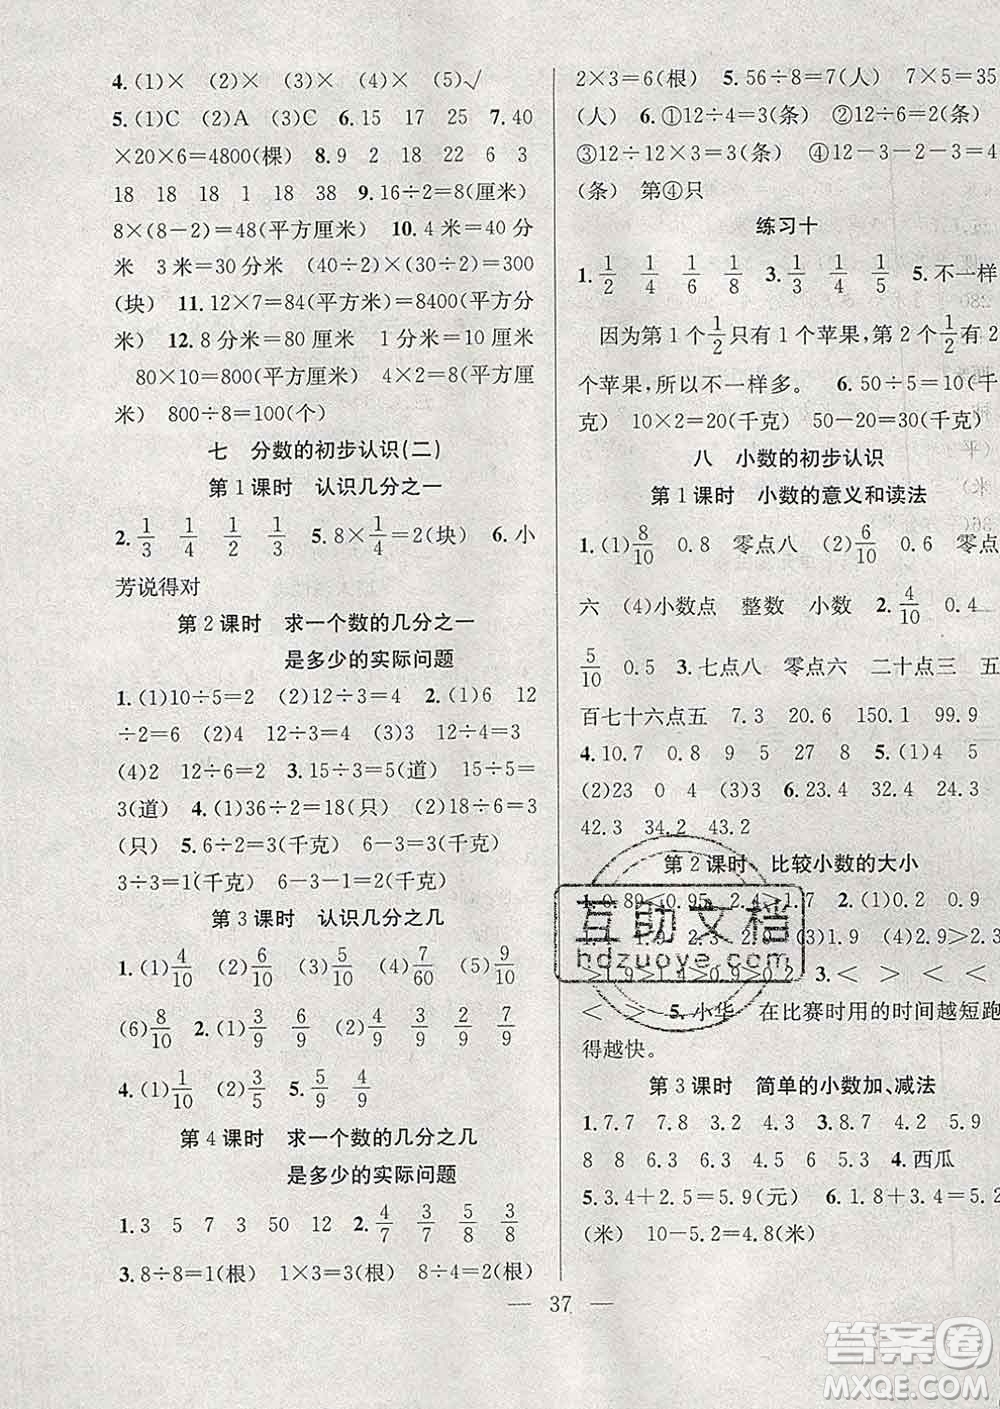 4.(1)× (2)× (3)× (4)× (5)√
5.(1)C (2)A (3)C 6.15 17 25 7.40
×20×6=4800(棵) 8.9 2 18 6 3
18 18 18 1 18 38 9.16÷2=8(厘米)
8×(8-2)=48(平方厘米) 10.4米=40分
米 3米=30分米 (40÷2)×(30÷2)=300
(块) 11.12×7=84(平方米)=8400(平方分
米) 12.8分米=80厘米 1分米=10厘米
80×10=800(平方厘米) 4×2=8(平方厘
米) 800÷8=100(个)
七 分数的初步认识(二)
第1课时 认识几分之一
2.1/3 1/4 1/2 1/3 5.8×1/4=2(块) 6.小
芳说得对
第2课时 求一个数的几分之一
是多少的实际问题
1.(1)10÷5=2 (2)12÷3=4 2.(1)6 12
÷2=6 (2)4 12÷3=4 (3)3 12÷4=3
(4)2 12÷6=2 3.15÷3=5(道) 15÷5=
3(道) 4.(1)36÷2=18(只) (2)12÷4=3
(只) 5.6÷2=3(千克) 6-3=3(千克)
3÷3=1(千克) 6-3-1=2(千克)
第3课时 认识几分之几
1.(1)4/10 (2)6/10 (3)5/10 (4)7/60 (5)9/10
(6)8/10 2.(1)3/9 6/9 (2)4/9 7/9
4.(1)1/10 (2)3/5 5.5/9 4/9
第4课时 求一个数的几分之几
是多少的实际问题
1.3 5 7 3 50 12 2.4/7 3/7 5/8 3/8
3.8÷8=1(根) 1×3=3(根) 8÷4=2(根)
2×3=6(根) 5.56÷8=7(人) 7×5=35
(人) 6.①12÷4=3(条) ②12÷2=6(条)
③12÷12×3=3(条) ④12-3-2-3=4
(条) 第④只
练习十
1.1/2 1/4 1/6 1/8 3.1/4 1/5 5.不一样
因为第1个1/2只有1个苹果,第2个1/2有2
个苹果,所以不一样多。 6.50÷5=10(千
克) 10×2=20(千克) 50-20=30(千克)
八 小数的初步认识
第1课时 小数的意义和读法
1.(1)8/10 0.8 零点八 (2)6/10 0.6 零点
六 (4)小数点 整数 小数 2.4/10 0.4
5/10 0.5 3.七点八 零点六 二十点三 五
百七十六点五 7.3 20.6 150.1 99.9
4.10.7 0.8 9 5 27 8 5.(1)4 5
(2)23 0 4 (3)3 7 6.23.4 32.4 24.3
42.3 34.2 43.2
第2课时 比较小数的大小
1.0.89<0.95 2.4>1.7 2.(1)0.2 0.9
1.9 2.3 2.9 (3)1.9 (4)2.9>2.3
>1.9>1.4>0.9>0.2 3.< > < <
< > 5.小华 在比赛时用的时间越短跑
得越快。
第3课时 简单的小数加、减法
1.7.7 7.8 3.2 4.3 3.8.7 4.2 5.9
8 8 6.5 2.6 1.5 2.9 4.西瓜
5.3.4+2.5=5.9(元) 6.1.8+3.4=5.2
(米) 10-5.2=4.8(米)
互助文档
hdzuoye.com
37
答案圈
MXQE.COM